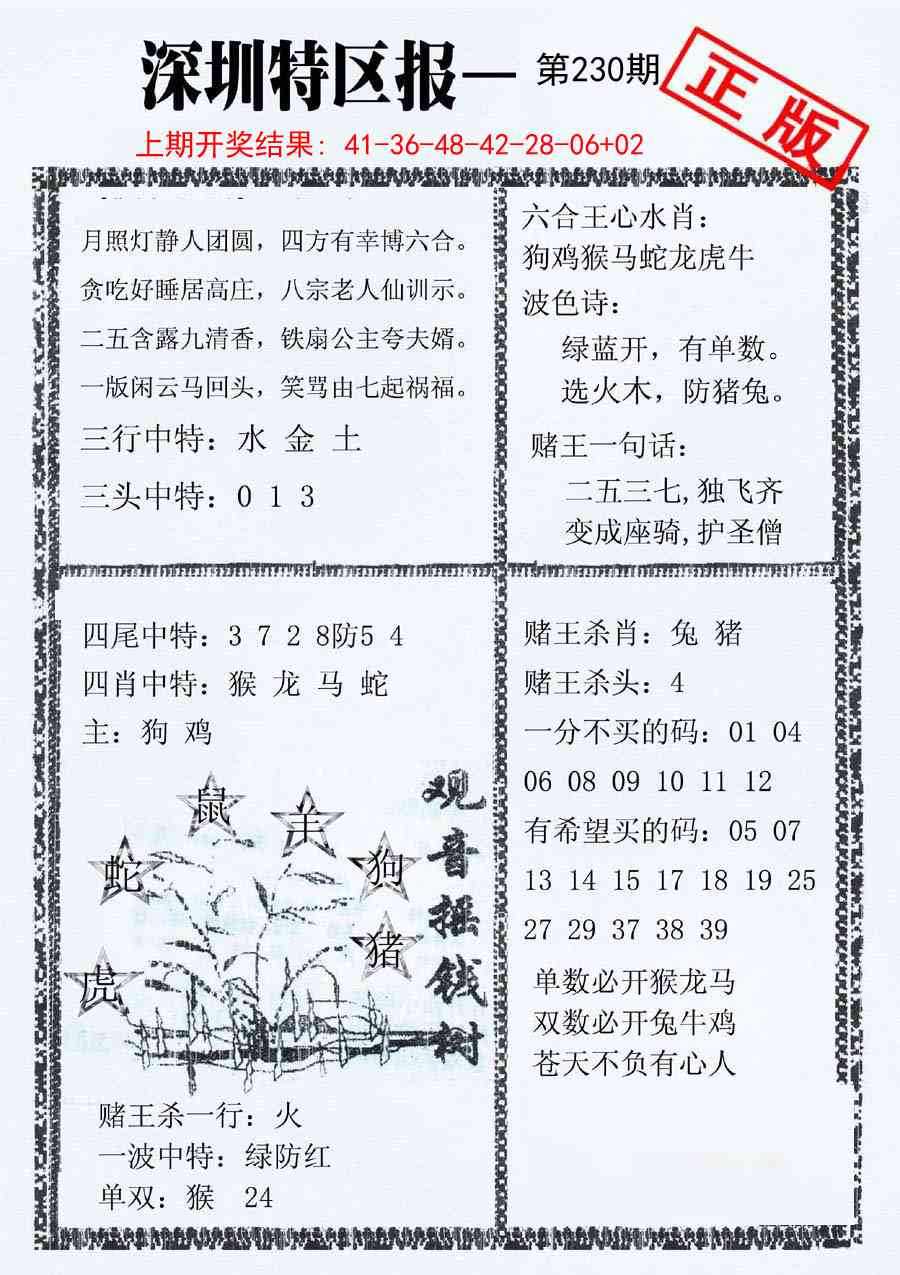 深圳特区报— 第230期
正版
上期开奖结果：41-36-48-42-28-06+02
月照灯静人团圆，四方有幸博六合。
贪吃好睡居高庄，八宗老人仙训示。
二五含露九清香，铁扇公主夸夫婿。
一版闲云马回头，笑骂由七起祸福。
三行中特：水 金 土
三头中特：0 1 3
六合王心水肖：
狗鸡猴马蛇龙虎牛
波色诗：
绿蓝开，有单数。
选火木，防猪兔。
赌王一句话：
二五三七,独飞齐
变成座骑,护圣僧
四尾中特：3 7 2 8防5 4
四肖中特：猴 龙 马 蛇
主：狗 鸡
鼠
羊
蛇
狗
猪
虎
观音摇钱树
赌王杀一行：火
一波中特：绿防红
单双：猴 24
赌王杀肖：兔 猪
赌王杀头：4
一分不买的码：01 04
06 08 09 10 11 12
有希望买的码：05 07
13 14 15 17 18 19 25
27 29 37 38 39
单数必开猴龙马
双数必开兔牛鸡
苍天不负有心人